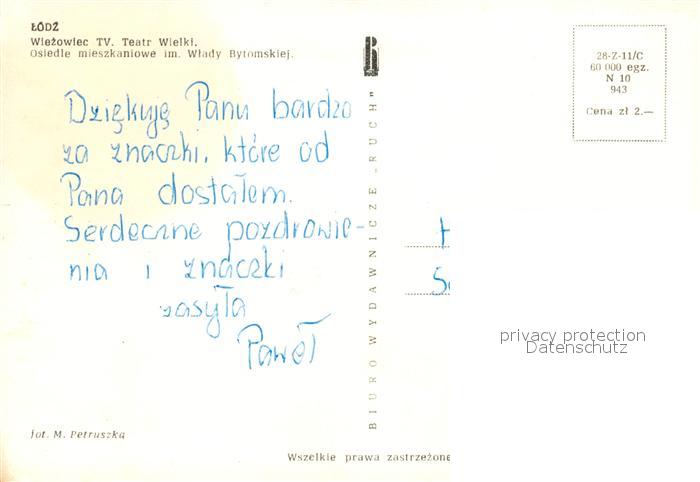 ŁÓDŹ
Wieżowiec TV. Teatr Wielki.
Osiedle mieszkaniowe im. Włady Bytomskiej.
Dziękuję Panu bardzo
za znaczki, które od
Pana dostałem.
Serdeczne pozdrowie-
nia i znaczki
zasyła
Paweł
fot. M. Petruszka
BIURO WYDAWNICZE „RUCH"
28-Z-11/C
60 000 egz.
N 10
943
Cena zł 2.—
H
S
privacy protection
Datenschutz
Wszelkie prawa zastrzeżone